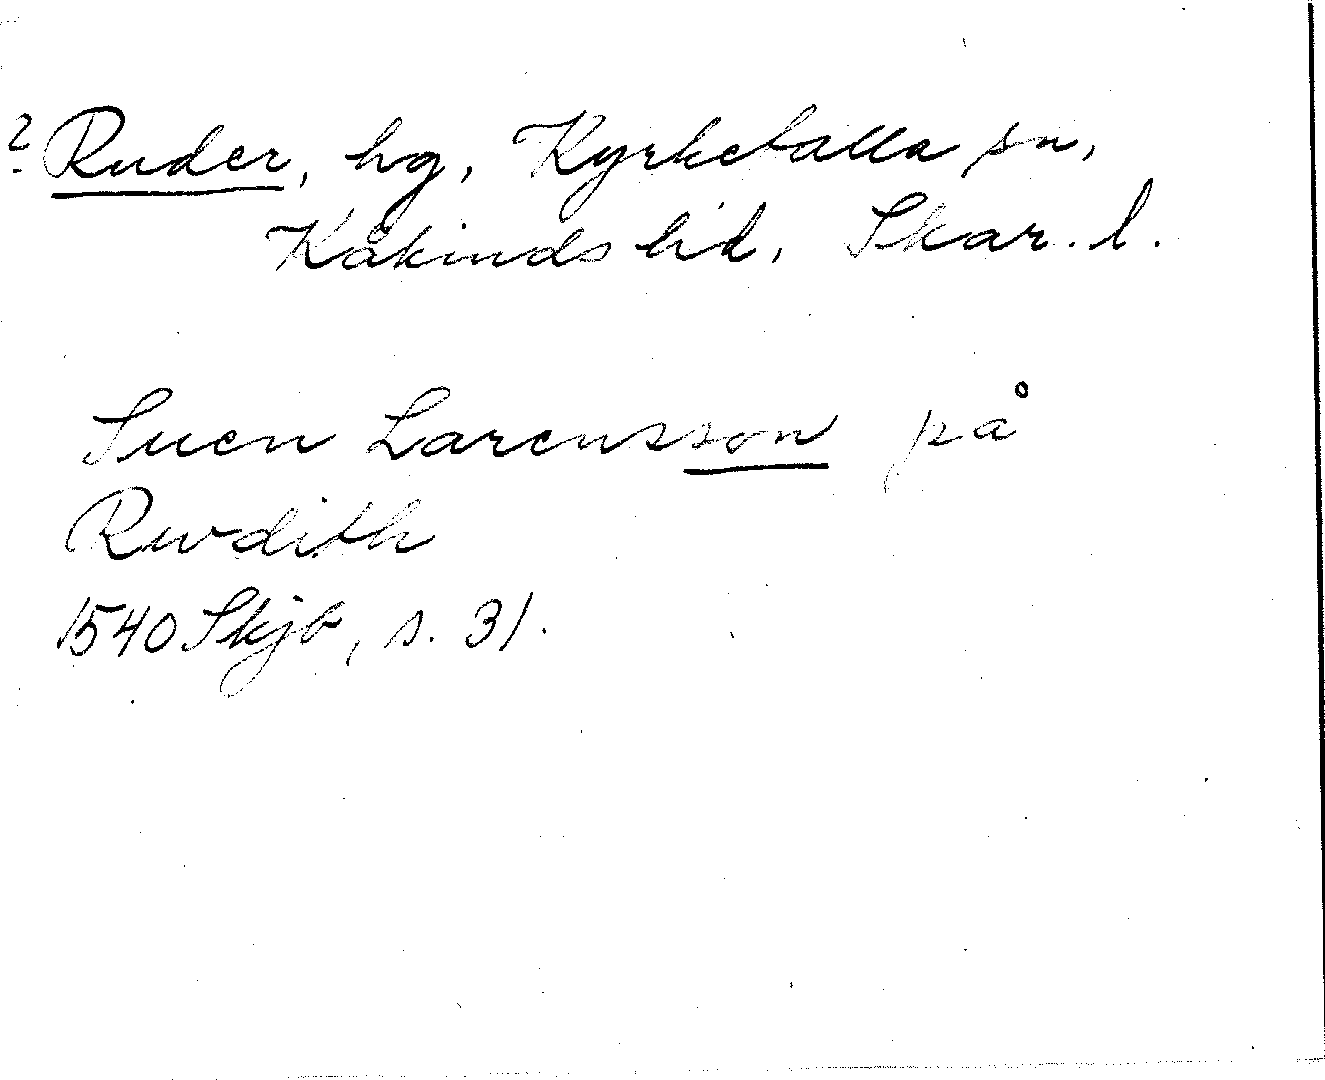 ? Ruder, hg, Kyrkefalla sn,
Kåkinds hd, Skar. l.
Suen Larensson på
Rwdith
1540 Skjb, s. 31.